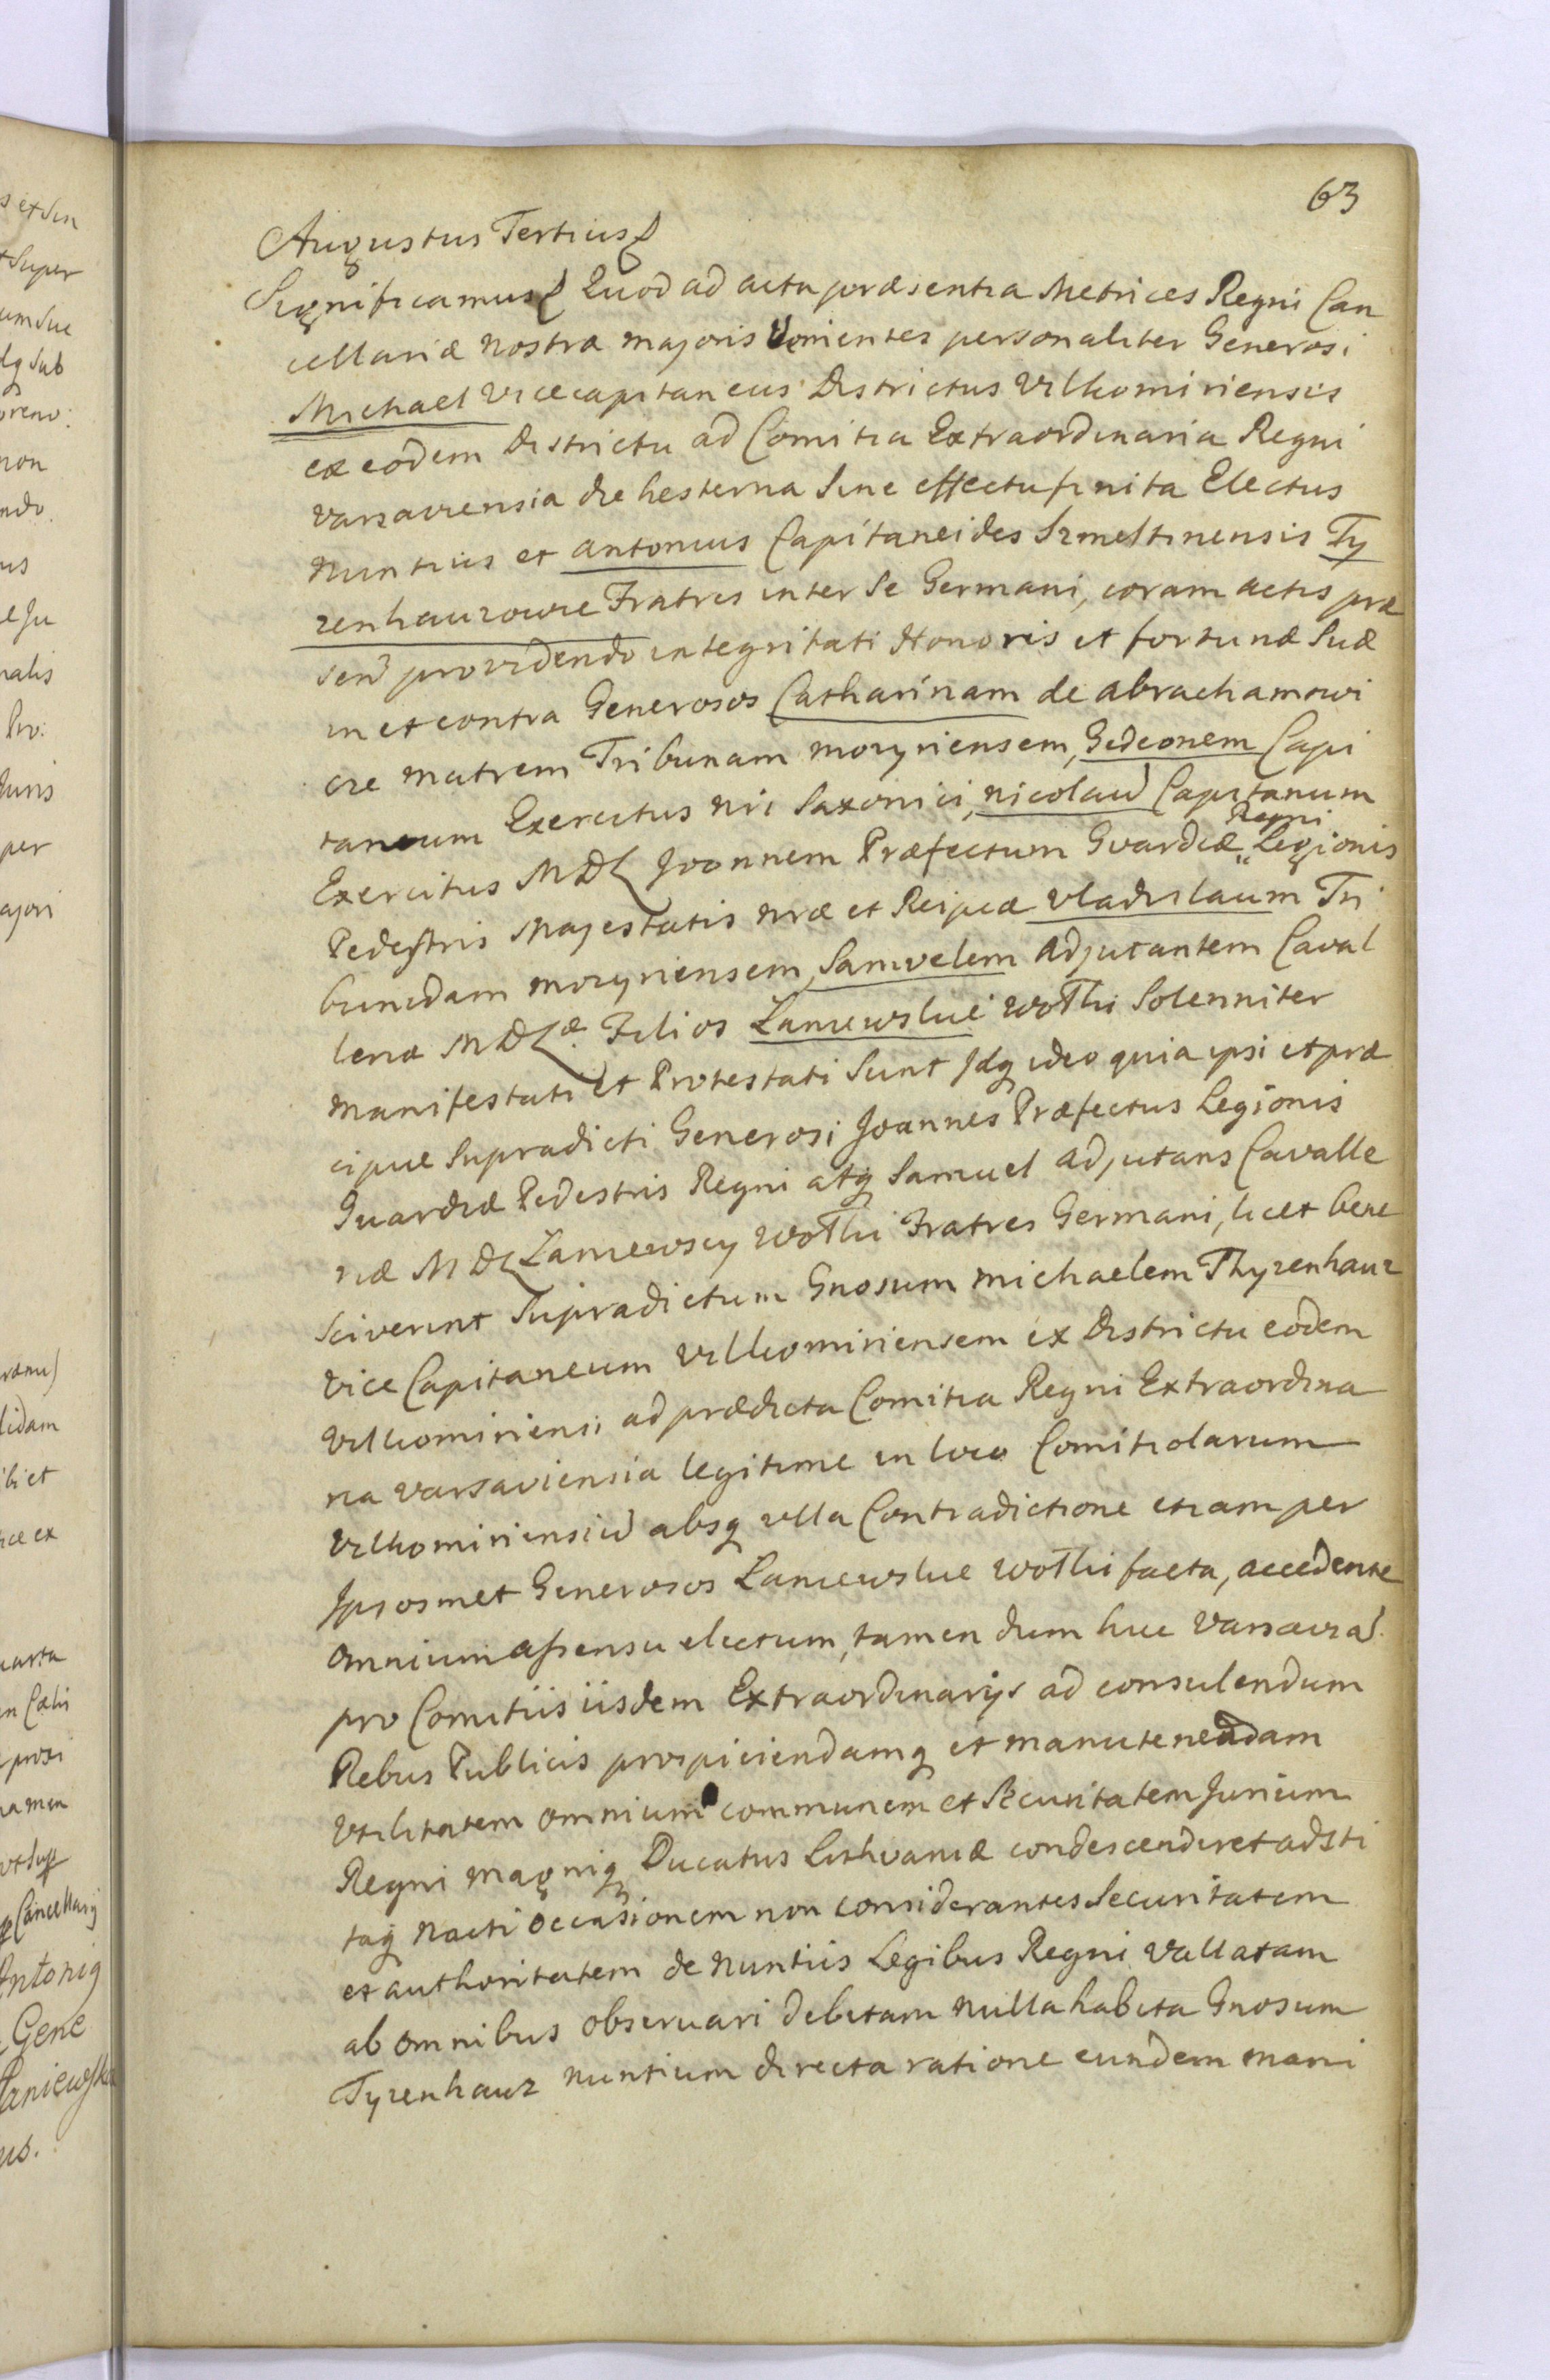 63
Augustus Tertius
Significamus Quod ad acta præsentia Metrices Regni Can
cellariæ nostræ majoris Venientes personaliter Generosi
Michael vicecapitaneus Districtus Vilkomiriensis
ex eodem Districtu ad Comitia Extraordinaria Regni
varsaviensia die hesterna Sine effectu finita Electus
Nuntius et Antonius Capitaneides Szmeltinensis Ty
zenhauzowie Fratres inter Se Germani, coram actis præ
sen providendo integritati Honoris et fortunæ Suæ
in et contra Generosos Catharinam de Abrachamowi
cze matrem Tribunam mozyriensem, Gedeonem Capi
taneum Exercitus nri Saxonici, Nicolaum Capitanum
Exercitus MDL Joannem Præfectum Gvardiæ Regni Legionis
Pedestris Majestatis nræ et Reipcæ Vladislaum Tri
bunidam mozyriensem, Samvelem Adjutantem Caval
leriæ MDLæ Filios Laniewskie Wothi Solenniter
manifestati et Protestati Sunt Idq ideo quia ipsi et præ
cipue Supradicti Generosi Joannes Præfectus Legionis
Guardiæ Pedestris Regni atq Samuel Adjutans Cavalle
riæ MDL Laniewscy Wothi Fratres Germani, licet bene
Sciverint Supradictum Gnosum Michaelem Thyzenhauz
Vice Capitaneum Vilkomiriensem ex Districtu eodem
Vilkomiriensi ad prædicta Comitia Regni Extraordina
ria varsaviensia legitime in loco Comitiolarum
Vilkomiriensium absq ulla Contradictione etiam per
Ipsosmet Generosos Laniewskie Wothi facta, accedente
omnium assensu electum, tamen dum huc Varsaviam
pro Comitiis iisdem Extraordinarys ad consulendum
Rebus Publicis prospiciendamq et manutenendam
Vtilitatem omnium communem et Securitatem Jurium
Regni magniq Ducatus Lithvaniæ condescenderet adsti
taq nacti occasionem non considerantes Securitatem
et authoritatem de Nuntiis Legibus Regni Vallatam
ab omnibus observari debitam nulla habita Gnosum
Tyzenhauz Nuntium directa ratione eundem mani